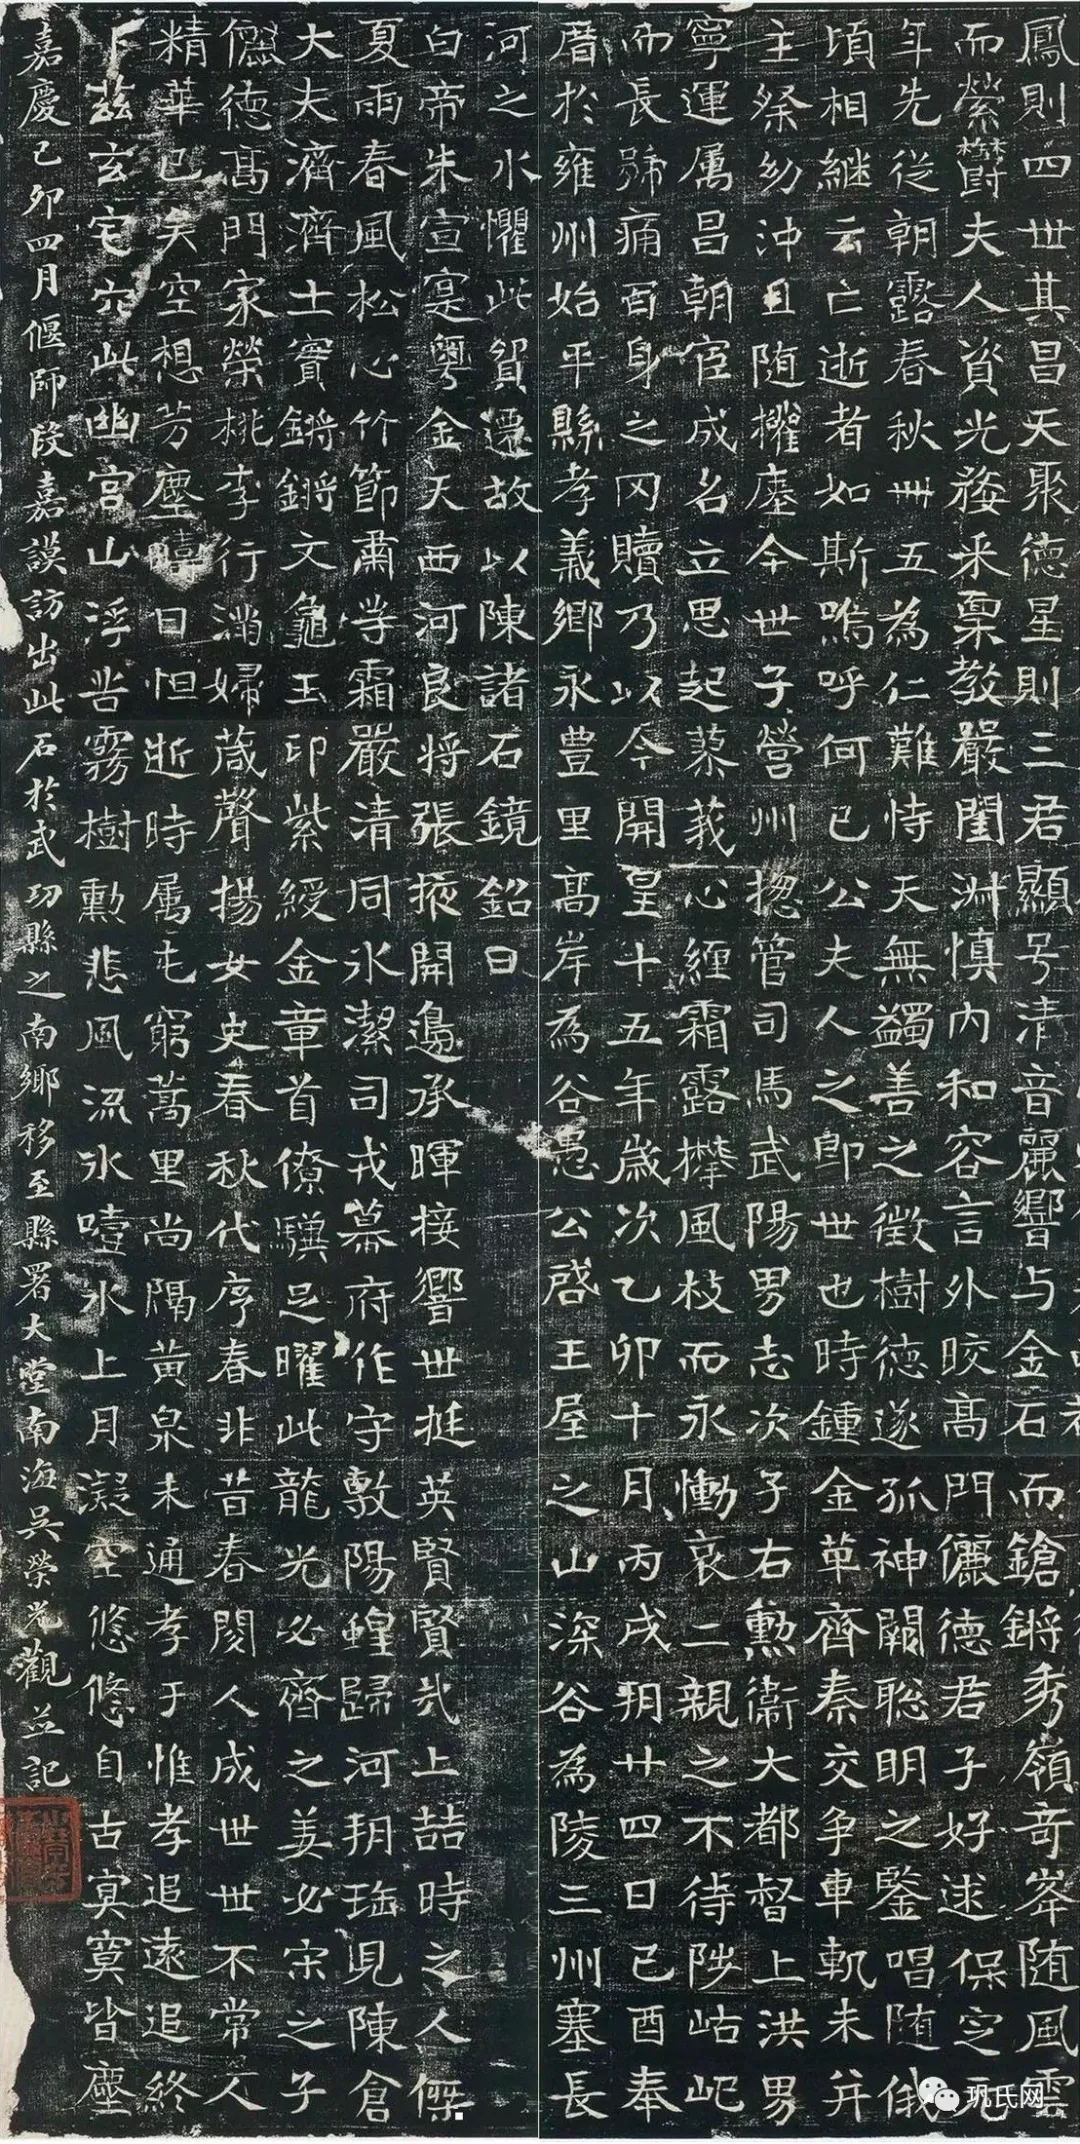 鳳則四世其昌天聚德星則三君顯号清音麗響与金石而鎗鏘秀嶺奇峯随風雲
而縈欝夫人資光婺采稟教嚴閨淋慎内和容言外晈髙門儷德君子好逑保定元
年先從朝露春秋卌五為仁難恃天無蠲善之徵樹德遂孤神闕聡明之鑒唱随俄
頃相継云亡逝者如斯嗚呼何已公夫人之即世也時鍾金革齊秦交争車軌未并
主祭幼沖且随權塵今世子營州揔管司馬武陽男志次子右勲衛大都督上洪男
寧運属昌朝宦成名立思起蓼莪心纒霜露攀風枝而永慟哀二親之不待陟岵屺
而長號痛百身之罔贖乃以今開皇十五年歲次乙卯十月丙戌朔廿四日己酉奉
厝於雍州始平縣孝義鄉永豊里髙岸為谷愚公啓王屋之山深谷為陵三州塞長
河之水懼此貿遷故以陳諸石鏡銘曰
白帝朱宣寔粤金天西河良将張掖開邊承暉接響世挺英賢賢哉上喆時之人傑
夏雨春風松心竹節肅等霜嚴清同氷潔司戎幕府作守敦陽蝗歸河朔珤見陳倉
大夫濟濟士實鏘鏘文龜玉印紫綬金章首僚驥足曜此龍光必齊之姜必宋之子
儷德髙門家榮桃李行滿婦葴聲揚女史春秋代序春非昔春閱人成世世不常人
精華已矣空想芳塵 日怛逝時属屯窮蒿里尚隔黄泉未通孝于惟孝追遠追終
卜兹玄宅穴此幽宮山浮苦霧樹勲悲風流水噎氷上月凝空悠悠自古寞寞皆塵
嘉慶己夘四月偃師段嘉謨訪出此石於武功縣之南鄉移至縣署大堂南海吴榮光觀並記
巩氏网